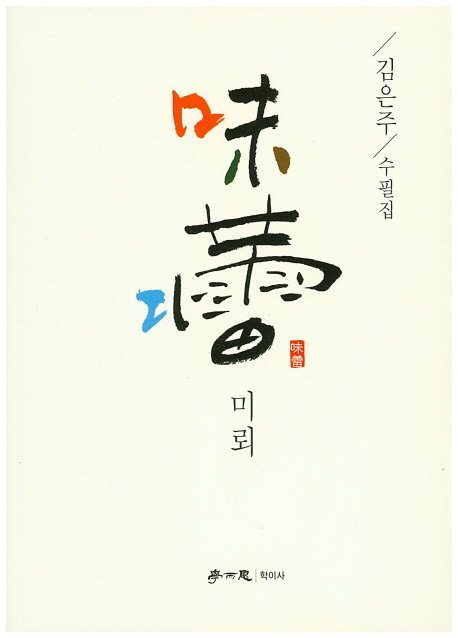 김은주 수필집
味蕾
味蕾
미뢰
學而思 학이사